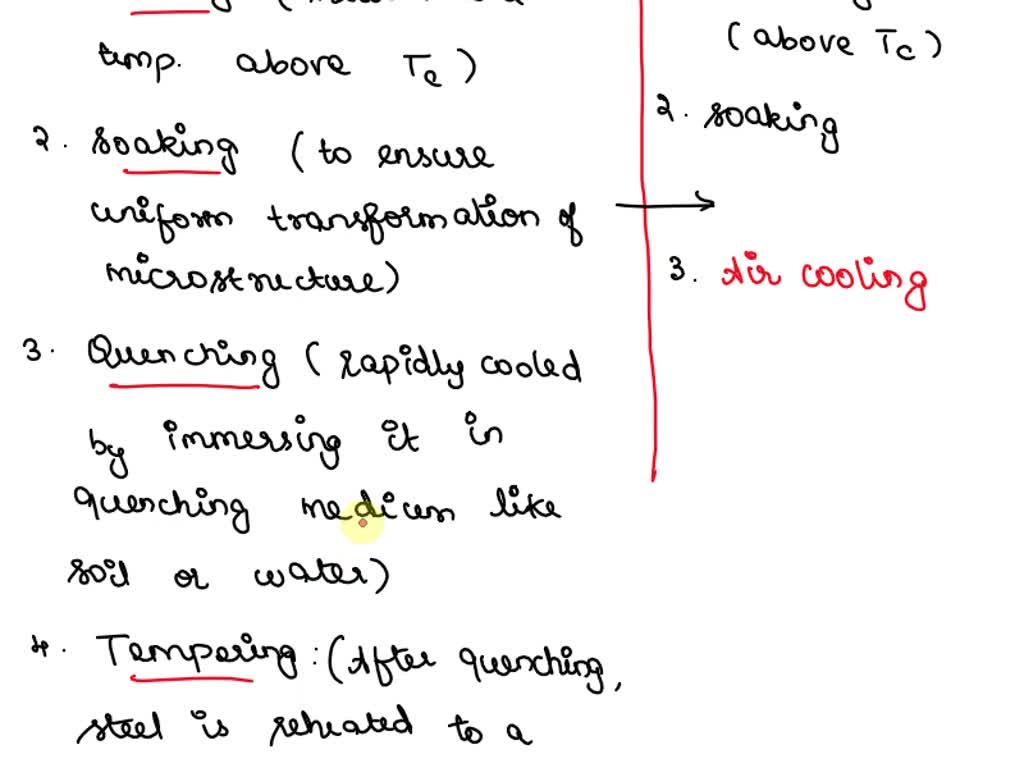 temp. above Tc)
2. Soaking (to ensure
uniform transformation of
microstructure)
3. Quenching (rapidly cooled
by immersing it in
quenching medium like
soil or water)
4. Tempering: (After quenching,
steel is reheated to a
(above Tc)
2. soaking
3. Air cooling